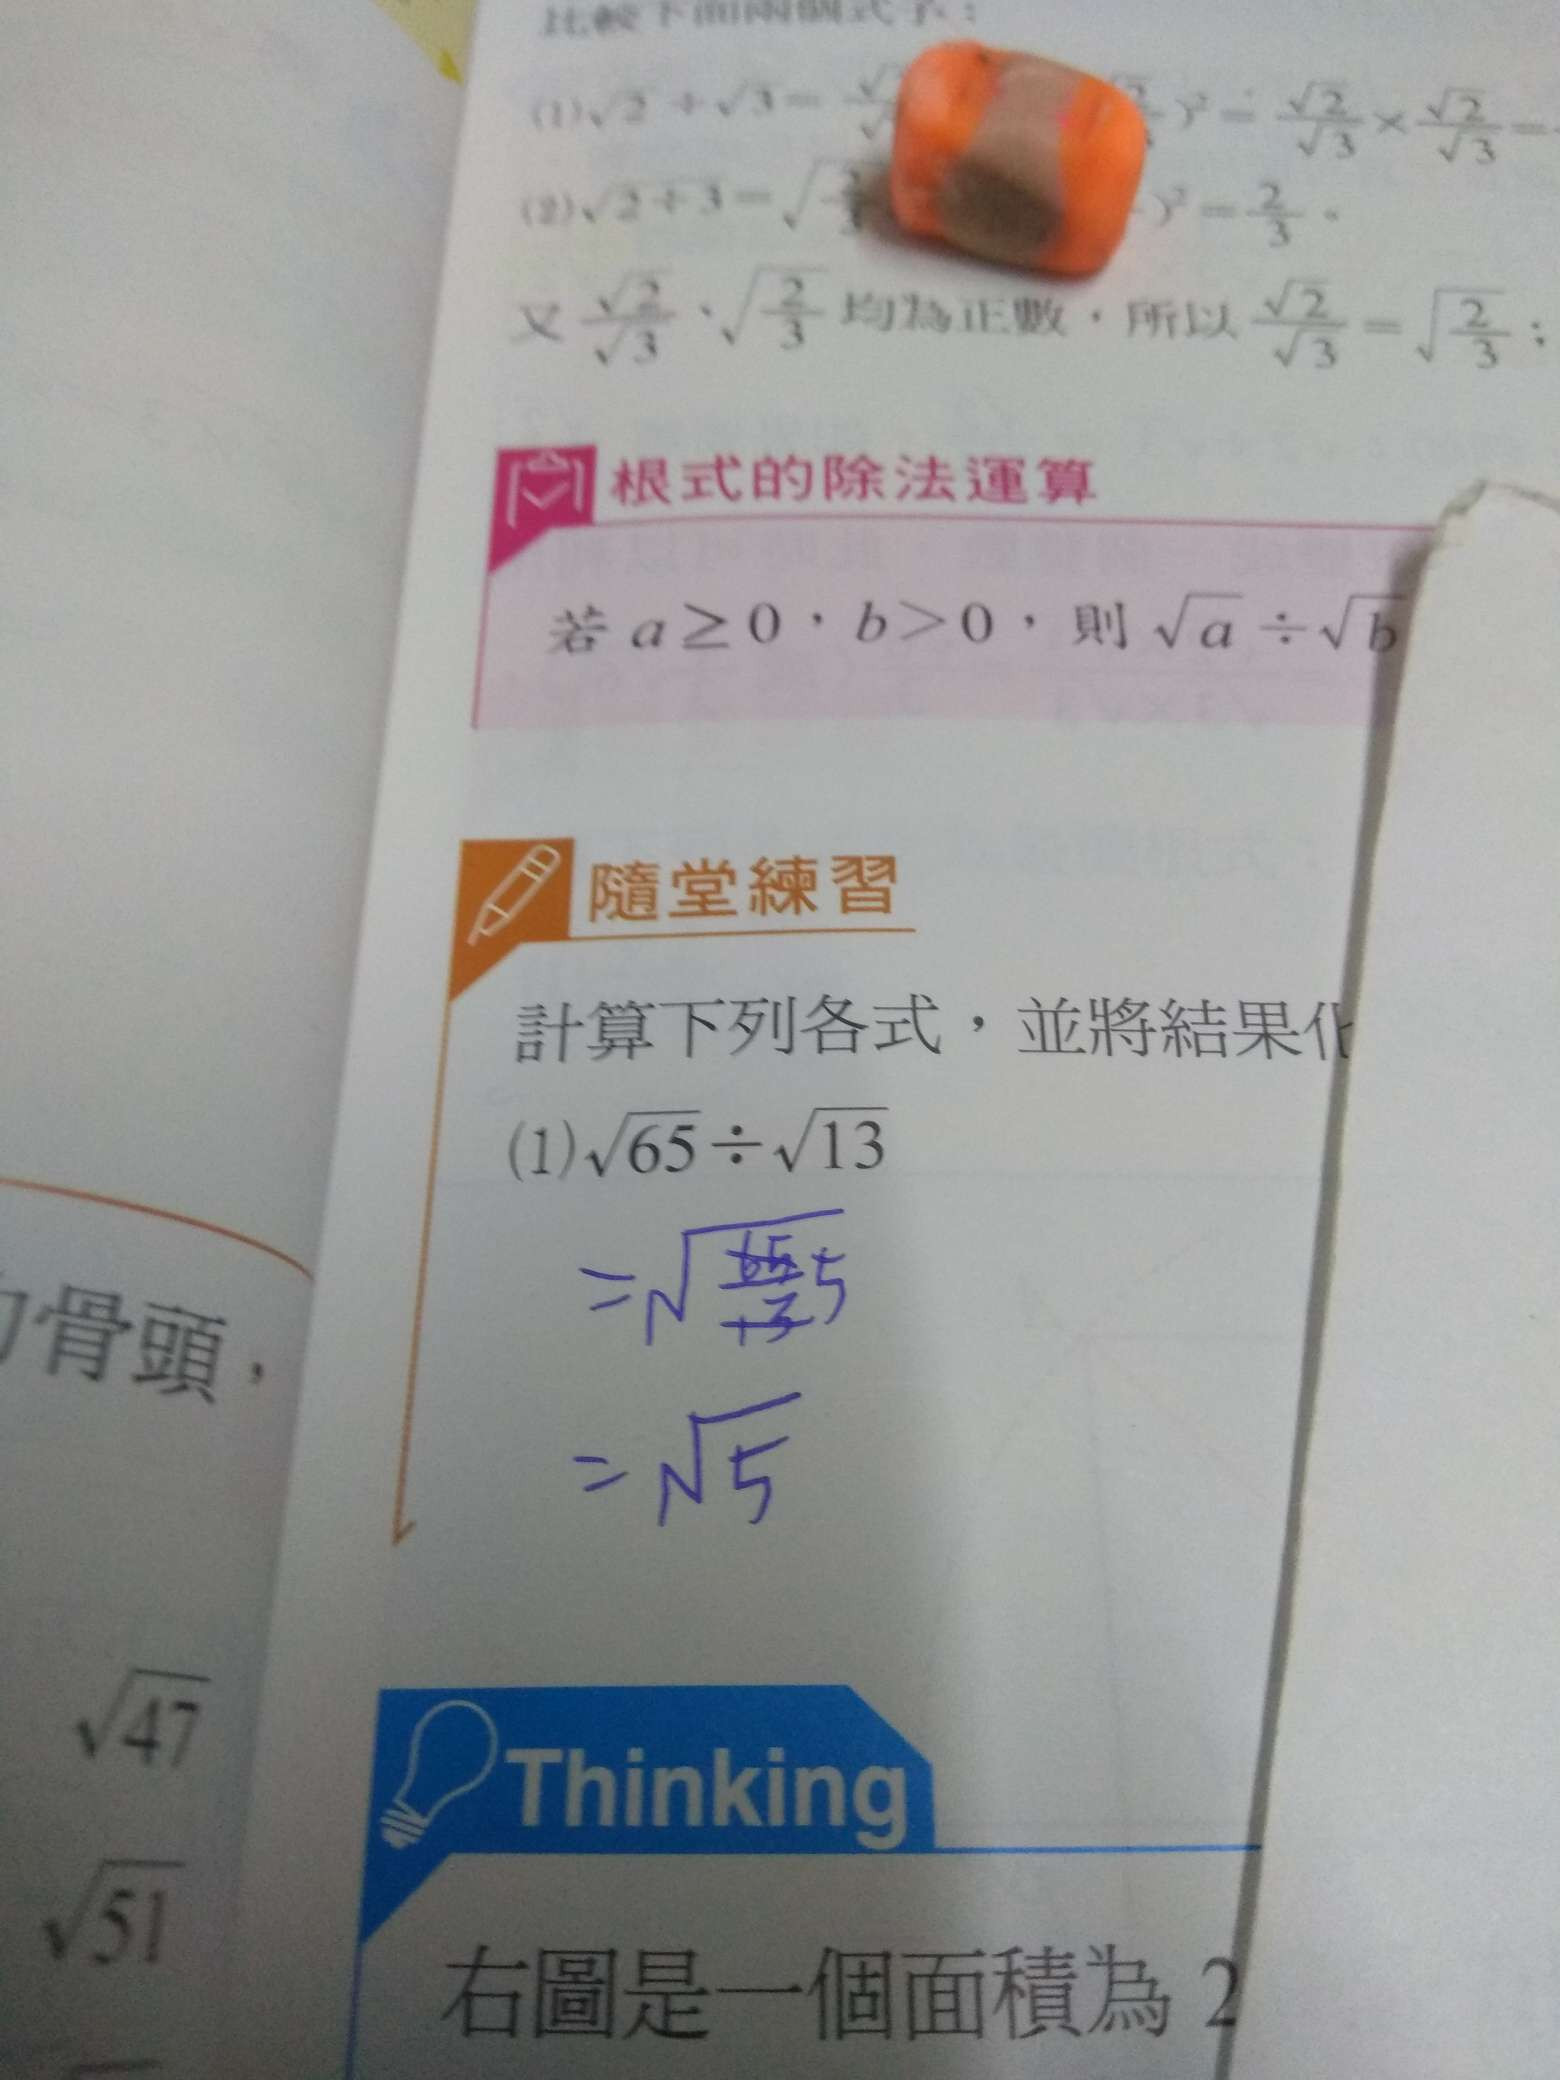 比較下面兩個式子：
(1)√2 ÷ √3 = )² = √2/√3 × √2/√3 =
(2)√2÷3 = √2/3 )² = 2/3 。
又 √2/√3 、√2/3 均為正數，所以 √2/√3 = √2/3；
根式的除法運算
若 a ≥ 0，b > 0，則 √a ÷ √b
隨堂練習
計算下列各式，並將結果化
(1)√65 ÷ √13
= √65/13 5
= √5
的骨頭，
√47
√51
Thinking
右圖是一個面積為 2